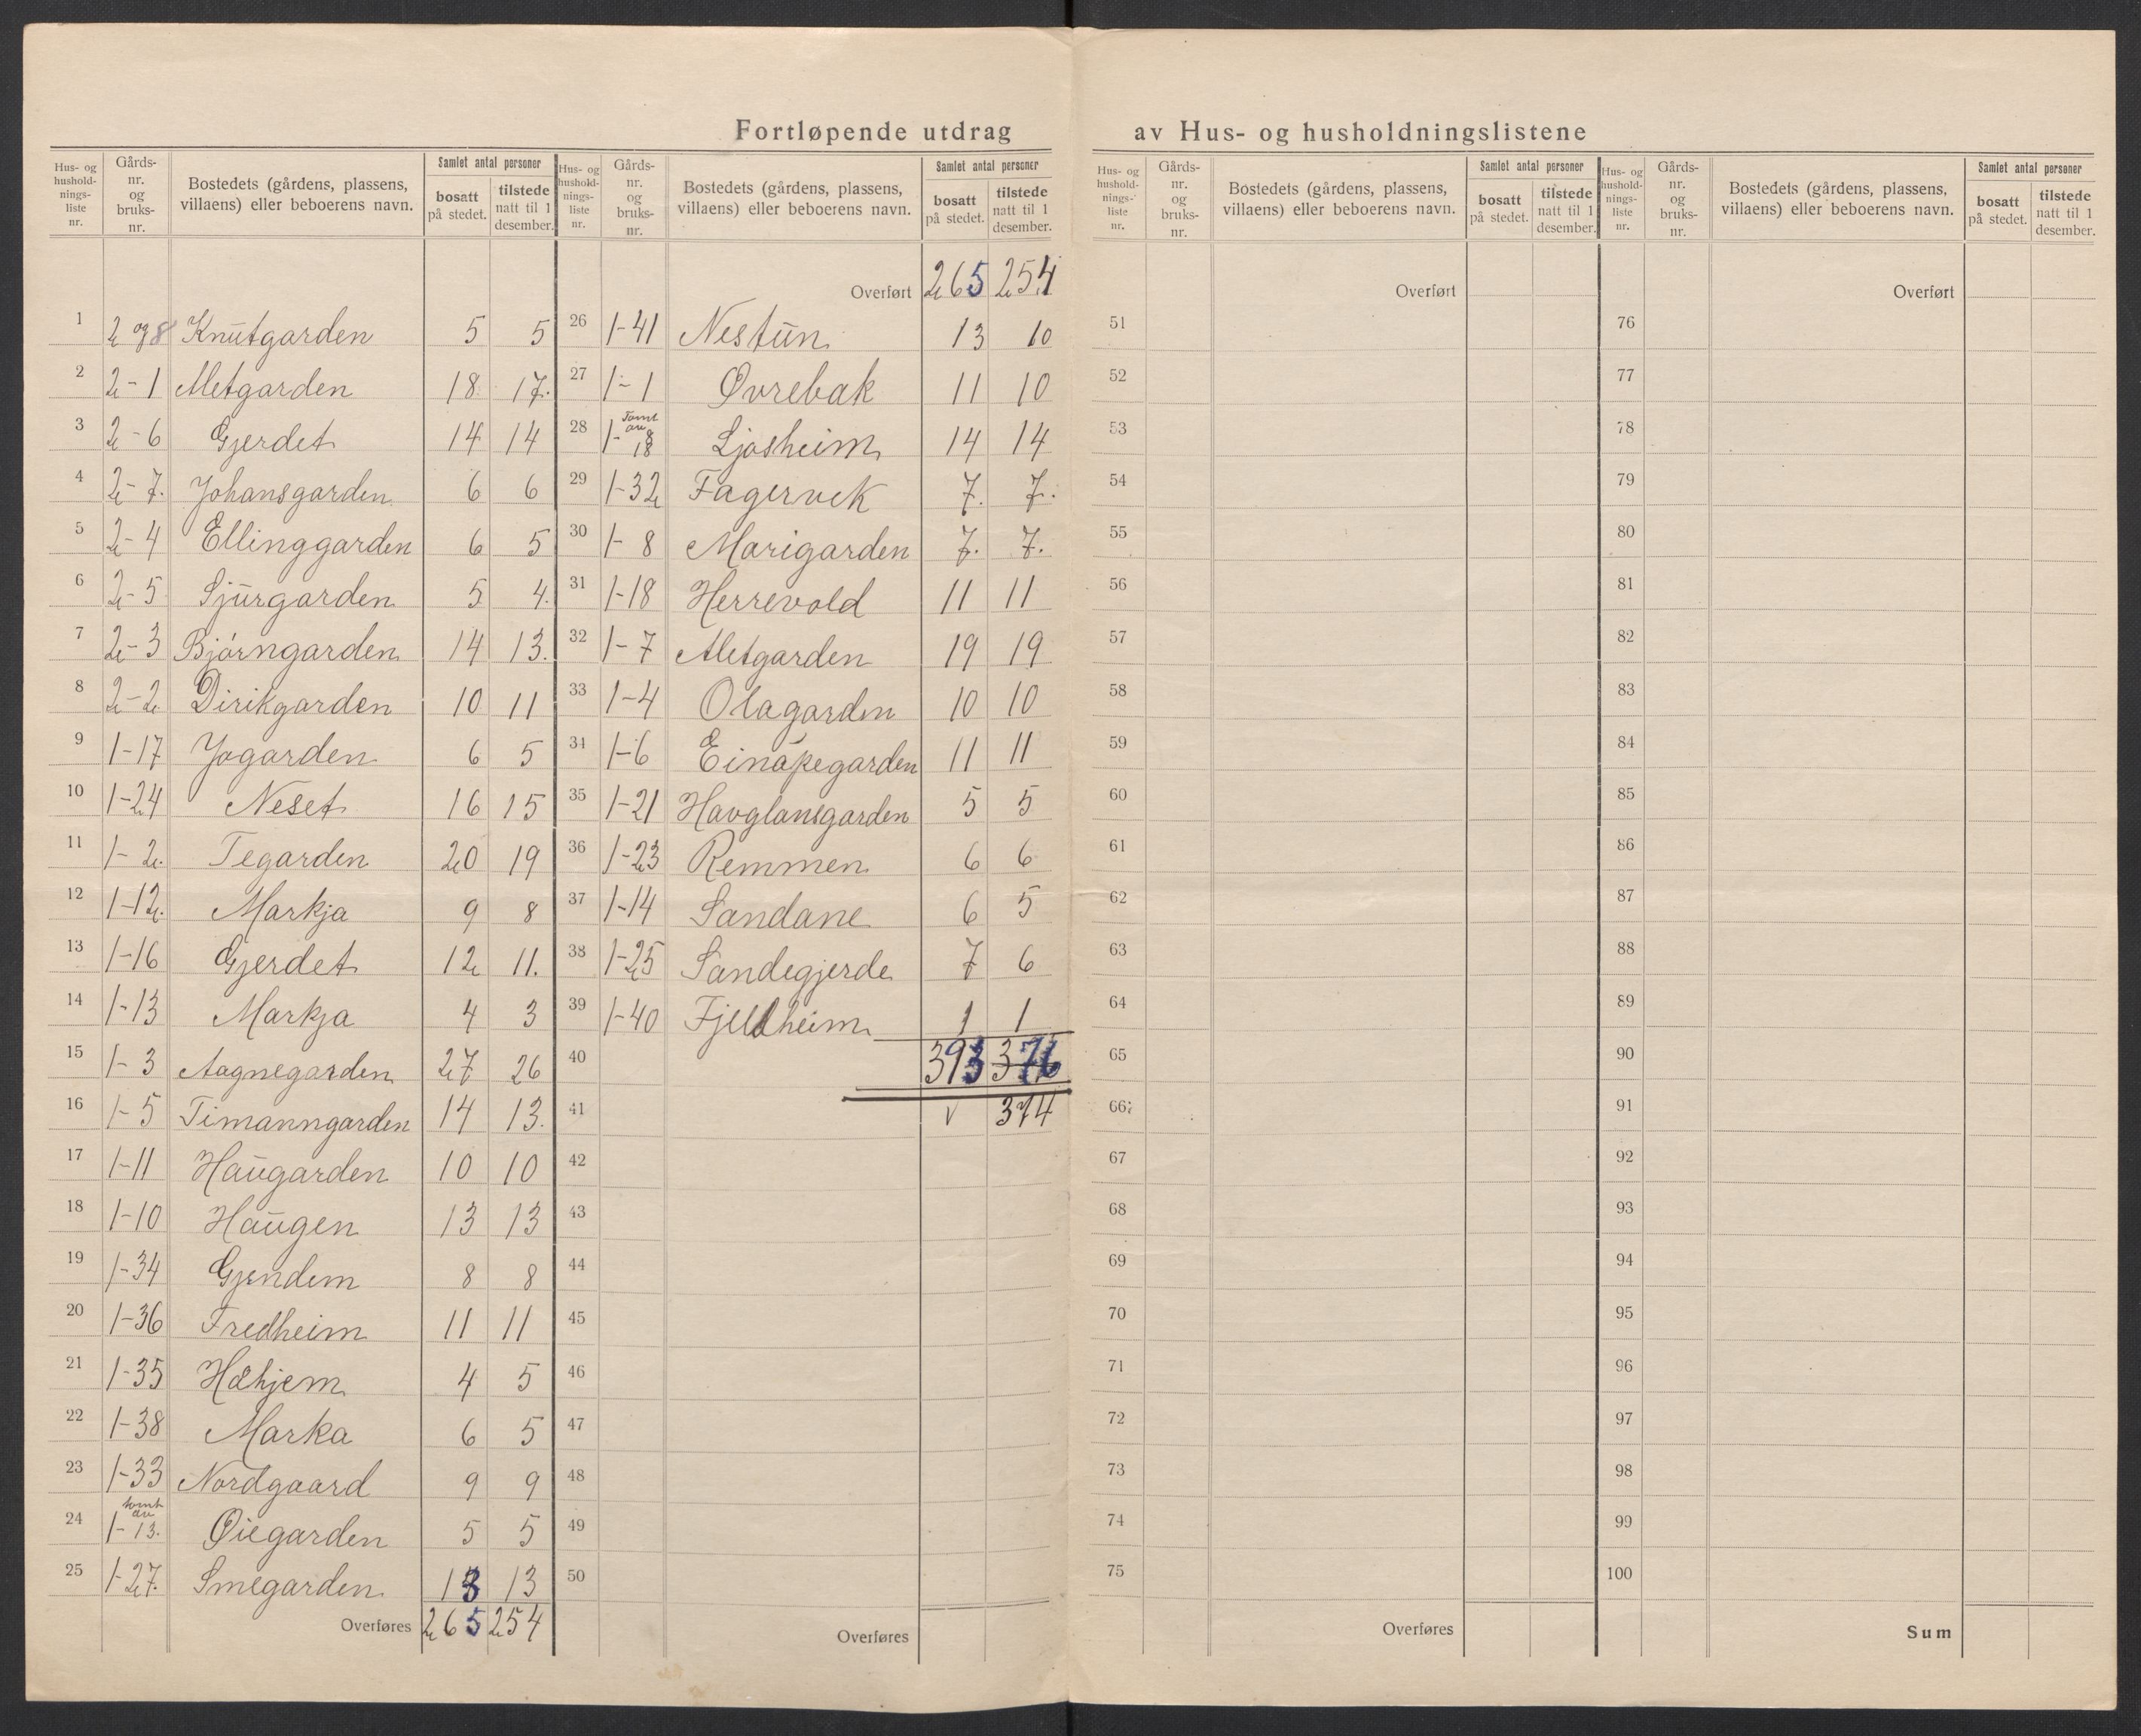 Fortløpende utdrag av Hus- og husholdningslistene
Hus- og hushold-nings-liste nr. | Gårds-nr. og bruks-nr. | Bostedets (gårdens, plassens, villaens) eller beboerens navn. | Samlet antal personer bosatt på stedet. | tilstede natt til 1 desember.
1 2 og 8 Knutgarden 5 5
2 2-1 Aletgarden 18 17.
3 2-6 Gjerdet 14 14
4 2-7. Johansgarden 6 6
5 2-4 Ellinggarden 6 5
6 2-5 Sjurgarden 5 4.
7 2-3 Bjørngarden 14 13.
8 2-2 Dirikgarden 10 11
9 1-17 Jogarden 6 5
10 1-24 Neset 16 15
11 1-2. Tegarden 20 19
12 1-12. Markja 9 8
13 1-16 Gjerdet 12 11.
14 1-13 Markja 4 3
15 1-3 Aagnegarden 27 26
16 1-5 Timanngarden 14 13.
17 1-11 Haugarden 10 10
18 1-10 Haugen 13 13
19 1-34 Gjendem 8 8
20 1-36 Fredheim 11 11
21 1-35 Hæhjem 4 5
22 1-38 Marka 6 5
23 1-33 Nordgaard 9 9
24 1- tomt av 13. Øiegarden 5 5
25 1-27. Smegarden 13 13
Overføres 265 254
Hus- og hushold-nings-liste nr. | Gårds-nr. og bruks-nr. | Bostedets (gårdens, plassens, villaens) eller beboerens navn. | Samlet antal personer bosatt på stedet. | tilstede natt til 1 desember.
Overført 265 254
26 1-41 Nestun 13 10
27 1-1 Øvrebak 11 10
28 1- Tomt av 8 18 Ljosheim 14 14
29 1-32 Fagervik 7. 7.
30 1-8 Marigarden 7. 7.
31 1-18 Herrevold 11 11
32 1-7 Aletgarden 19 19
33 1-4 Olagarden 10 10
34 1-6 Einápegarden 11 11
35 1-21 Havglansgarden 5 5
36 1-23 Remmen 6 6
37 1-14 Sandane 6 5
38 1-25 Sandegjerde 7 6
39 1-40 Fjeldheim 1 1
40 393 376
41 v 374
42
43
44
45
46
47
48
49
50
Overføres
Hus- og hushold-nings-liste nr. | Gårds-nr. og bruks-nr. | Bostedets (gårdens, plassens, villaens) eller beboerens navn. | Samlet antal personer bosatt på stedet. | tilstede natt til 1 desember.
Overført
51
52
53
54
55
56
57
58
59
60
61
62
63
64
65
66
67
68
69
70
71
72
73
74
75
Overføres
Hus- og hushold-nings-liste nr. | Gårds-nr. og bruks-nr. | Bostedets (gårdens, plassens, villaens) eller beboerens navn. | Samlet antal personer bosatt på stedet. | tilstede natt til 1 desember.
Overført
76
77
78
79
80
81
82
83
84
85
86
87
88
89
90
91
92
93
94
95
96
97
98
99
100
Sum